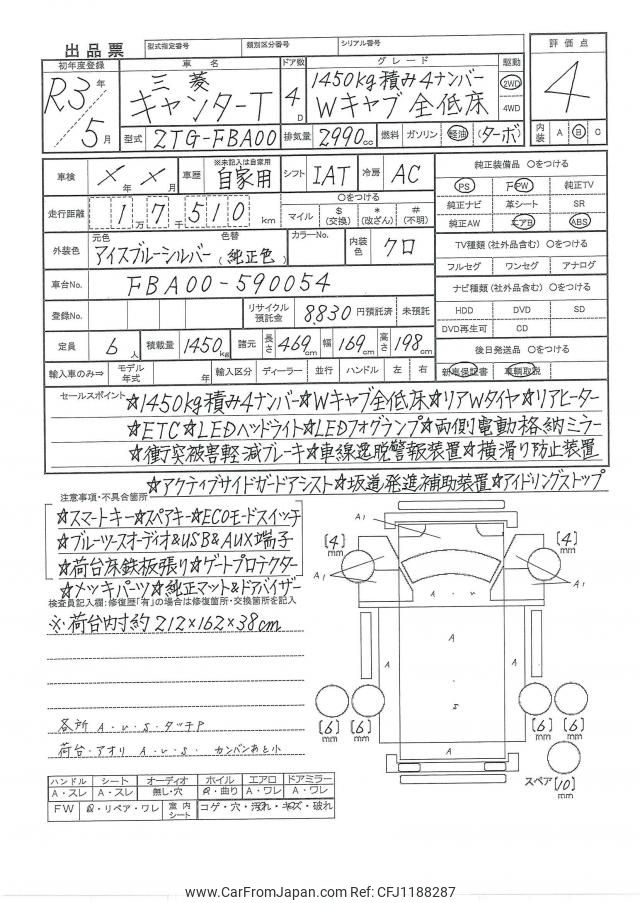 出品票 型式指定番号 類別区分番号 シリアル番号
初年度登録 車名 ドア数 グレード 駆動 評価点
R3年 三菱 4D 1450kg積み4ナンバー 2WD 4
5月 キャンターT Wキャブ 全低床 4WD
型式 2TG-FBA00 排気量 2990cc 燃料 ガソリン 軽油 (ターボ) 内装 A B C
車検 ×年 ×月 車歴 ※未記入は自家用 自家用 シフト IAT 冷房 AC 純正装備品 ○をつける
PS PW 純正TV
走行距離 1万7千510km マイル ○をつける $(交換) *(改ざん) #(不明) 純正ナビ 革シート SR
純正AW エアB ABS
外装色 元色 色替 アイスブルーシルバー(純正色) カラーNo. 内装色 クロ TV種類(社外品含む) ○をつける
フルセグ ワンセグ アナログ
車台No. FBA00-590054 ナビ種類(社外品含む) ○をつける
登録No. リサイクル預託金 8830円預託済 未預託 HDD DVD SD
DVD再生可 CD
定員 6人 積載量 1450kg 諸元 長さ 469cm 幅 169cm 高さ 198cm 後日発送品 ○をつける
輸入車のみ⇒ モデル年式 年 輸入区分 ディーラー 並行 ハンドル 左 右 新車保証書 車輌取説
セールスポイント ☆1450kg積み4ナンバー☆Wキャブ全低床☆リアWタイヤ☆リアヒーター
☆ETC☆LEDヘッドライト☆LEDフォグランプ☆両側電動格納ミラー
☆衝突被害軽減ブレーキ☆車線逸脱警報装置☆横滑り防止装置
☆アクティブサイドガードアシスト☆坂道発進補助装置☆アイドリングストップ
注意事項・不具合箇所
☆スマートキー☆スペアキー☆ECOモードスイッチ
☆ブルーツースオーディオ&USB&AUX端子
☆荷台床鉄板張り☆ゲートプロテクター
☆メッキパーツ☆純正マット&ドアバイザー
検査員記入欄:修復歴「有」の場合は修復箇所・交換箇所を記入
※荷台内寸約212×162×38cm
各所 A・U・S・タッチP
荷台・アオリ A・U・S・ カンバンあと小
A1
[4]mm [4]mm
A1 A1
A・U
A
A A
S
A
[6]mm [6]mm [6]mm [6]mm
スペア[10]mm
ハンドル シート オーディオ ホイル エアロ ドアミラー
A・スレ A・スレ 無し・穴 A・曲り A・ワレ A・ワレ
FW A・リペア・ワレ 室内シート コゲ・穴・汚れ・キズ・破れ
www.CarFromJapan.com Ref: CFJ1188287